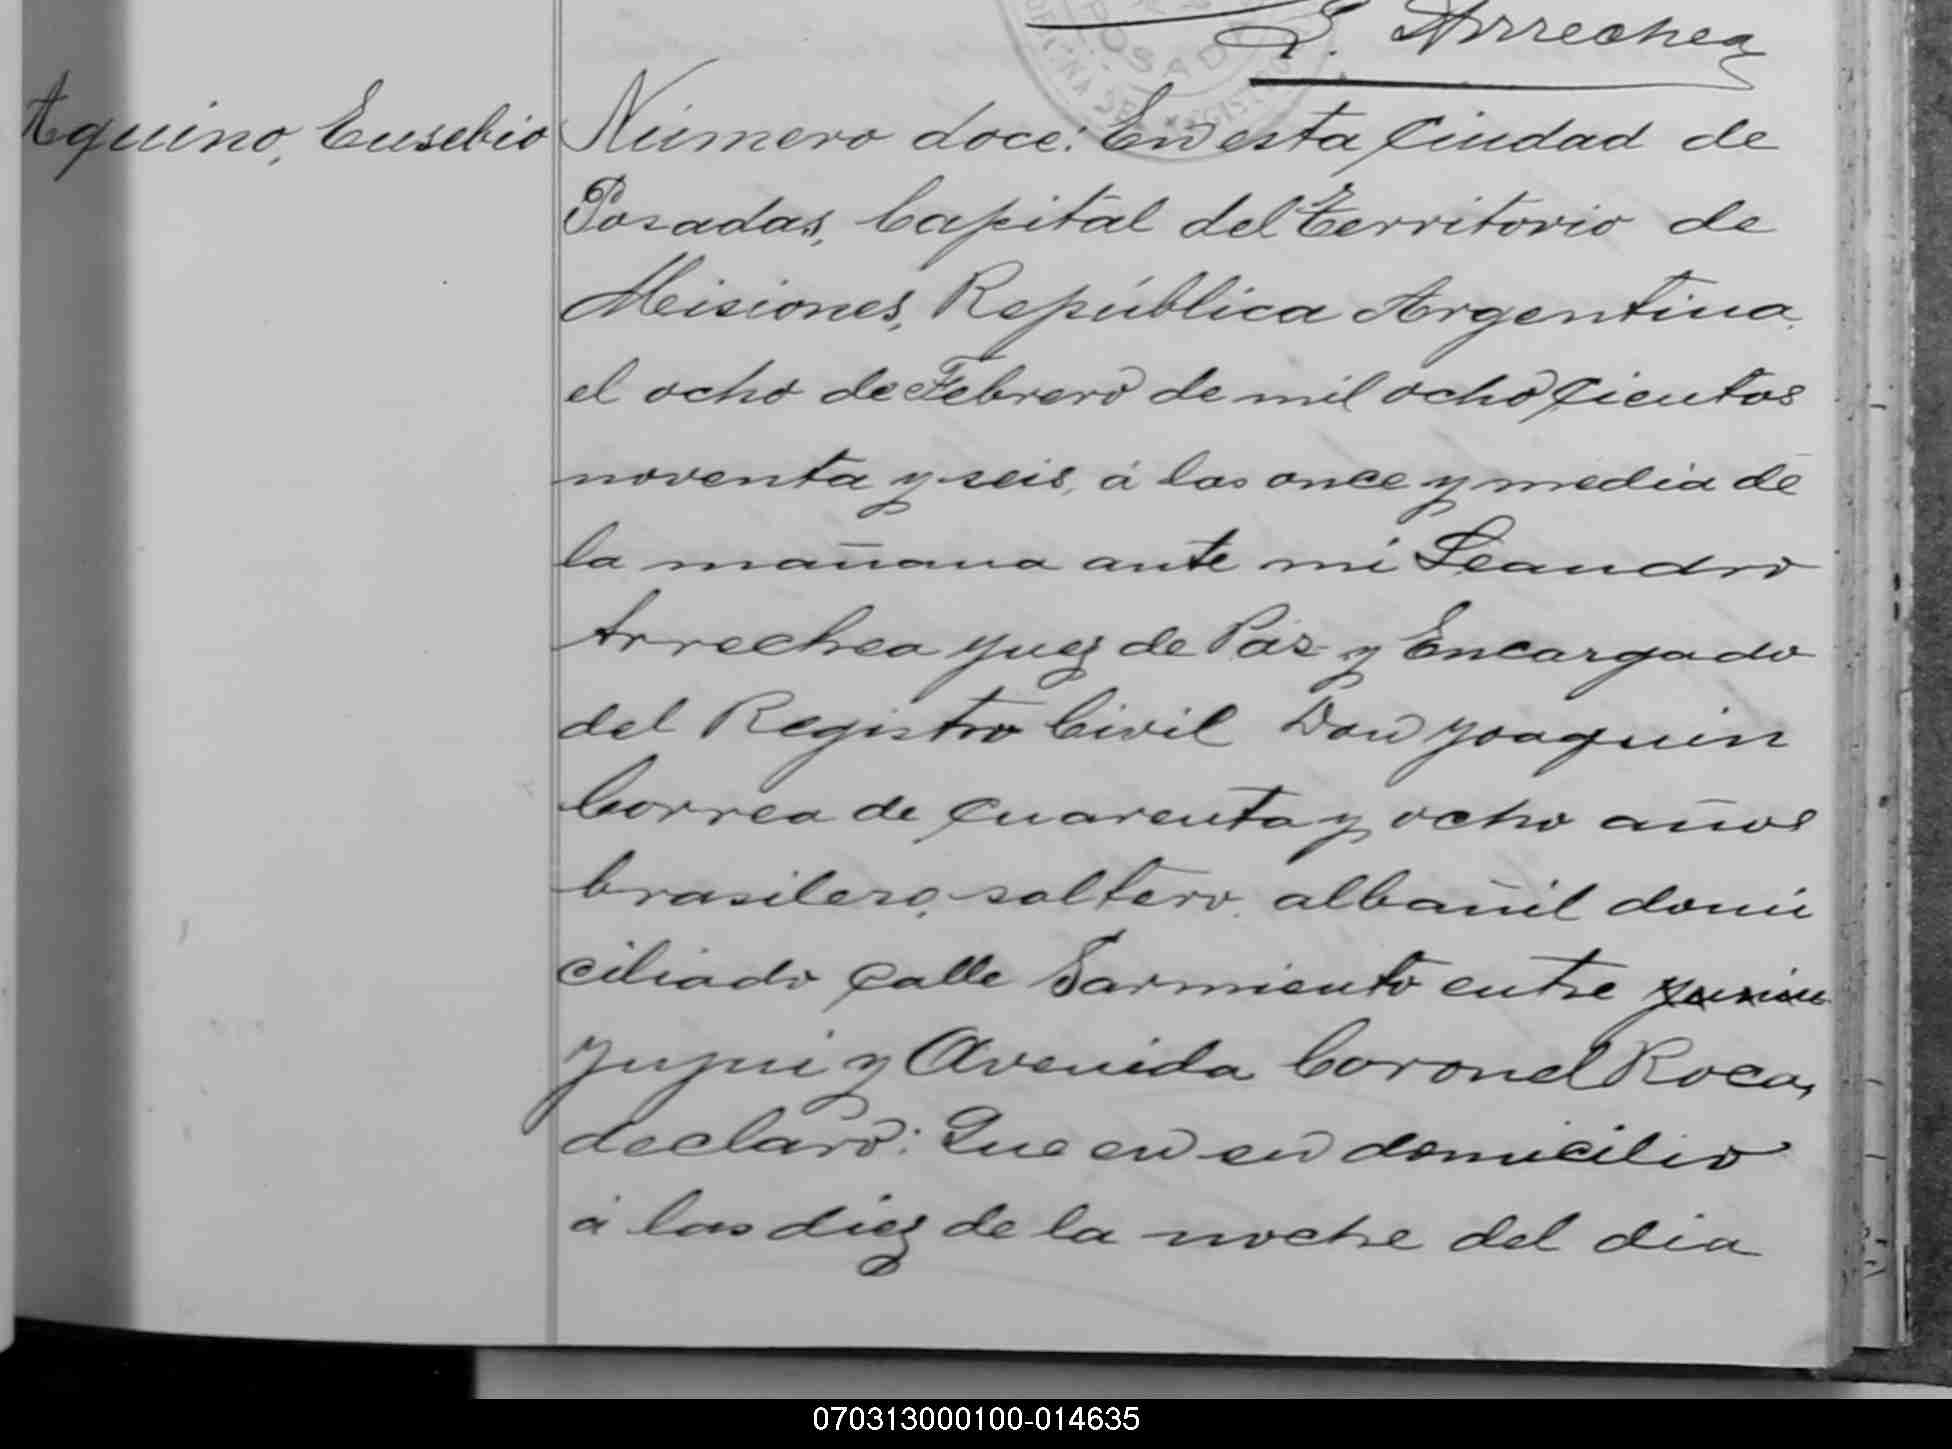 L. Arrechea
POSADAS
Aquino, Eusebio
Número doce: En esta Ciudad de
Posadas, Capital del Territorio de
Misiones, República Argentina,
el ocho de Febrero de mil ocho cientos
noventa y seis, á las once y media de
la mañana ante mi Leandro
Arrechea Juez de Paz y Encargado
del Registro Civil Don Joaquin
Correa de cuarenta y ocho años
brasilero, soltero, albañil domi
ciliado calle Sarmiento entre Junin
Jujui y Avenida Coronel Roca,
declaró: Que en su domicilio
á las diez de la noche del dia
070313000100-014635